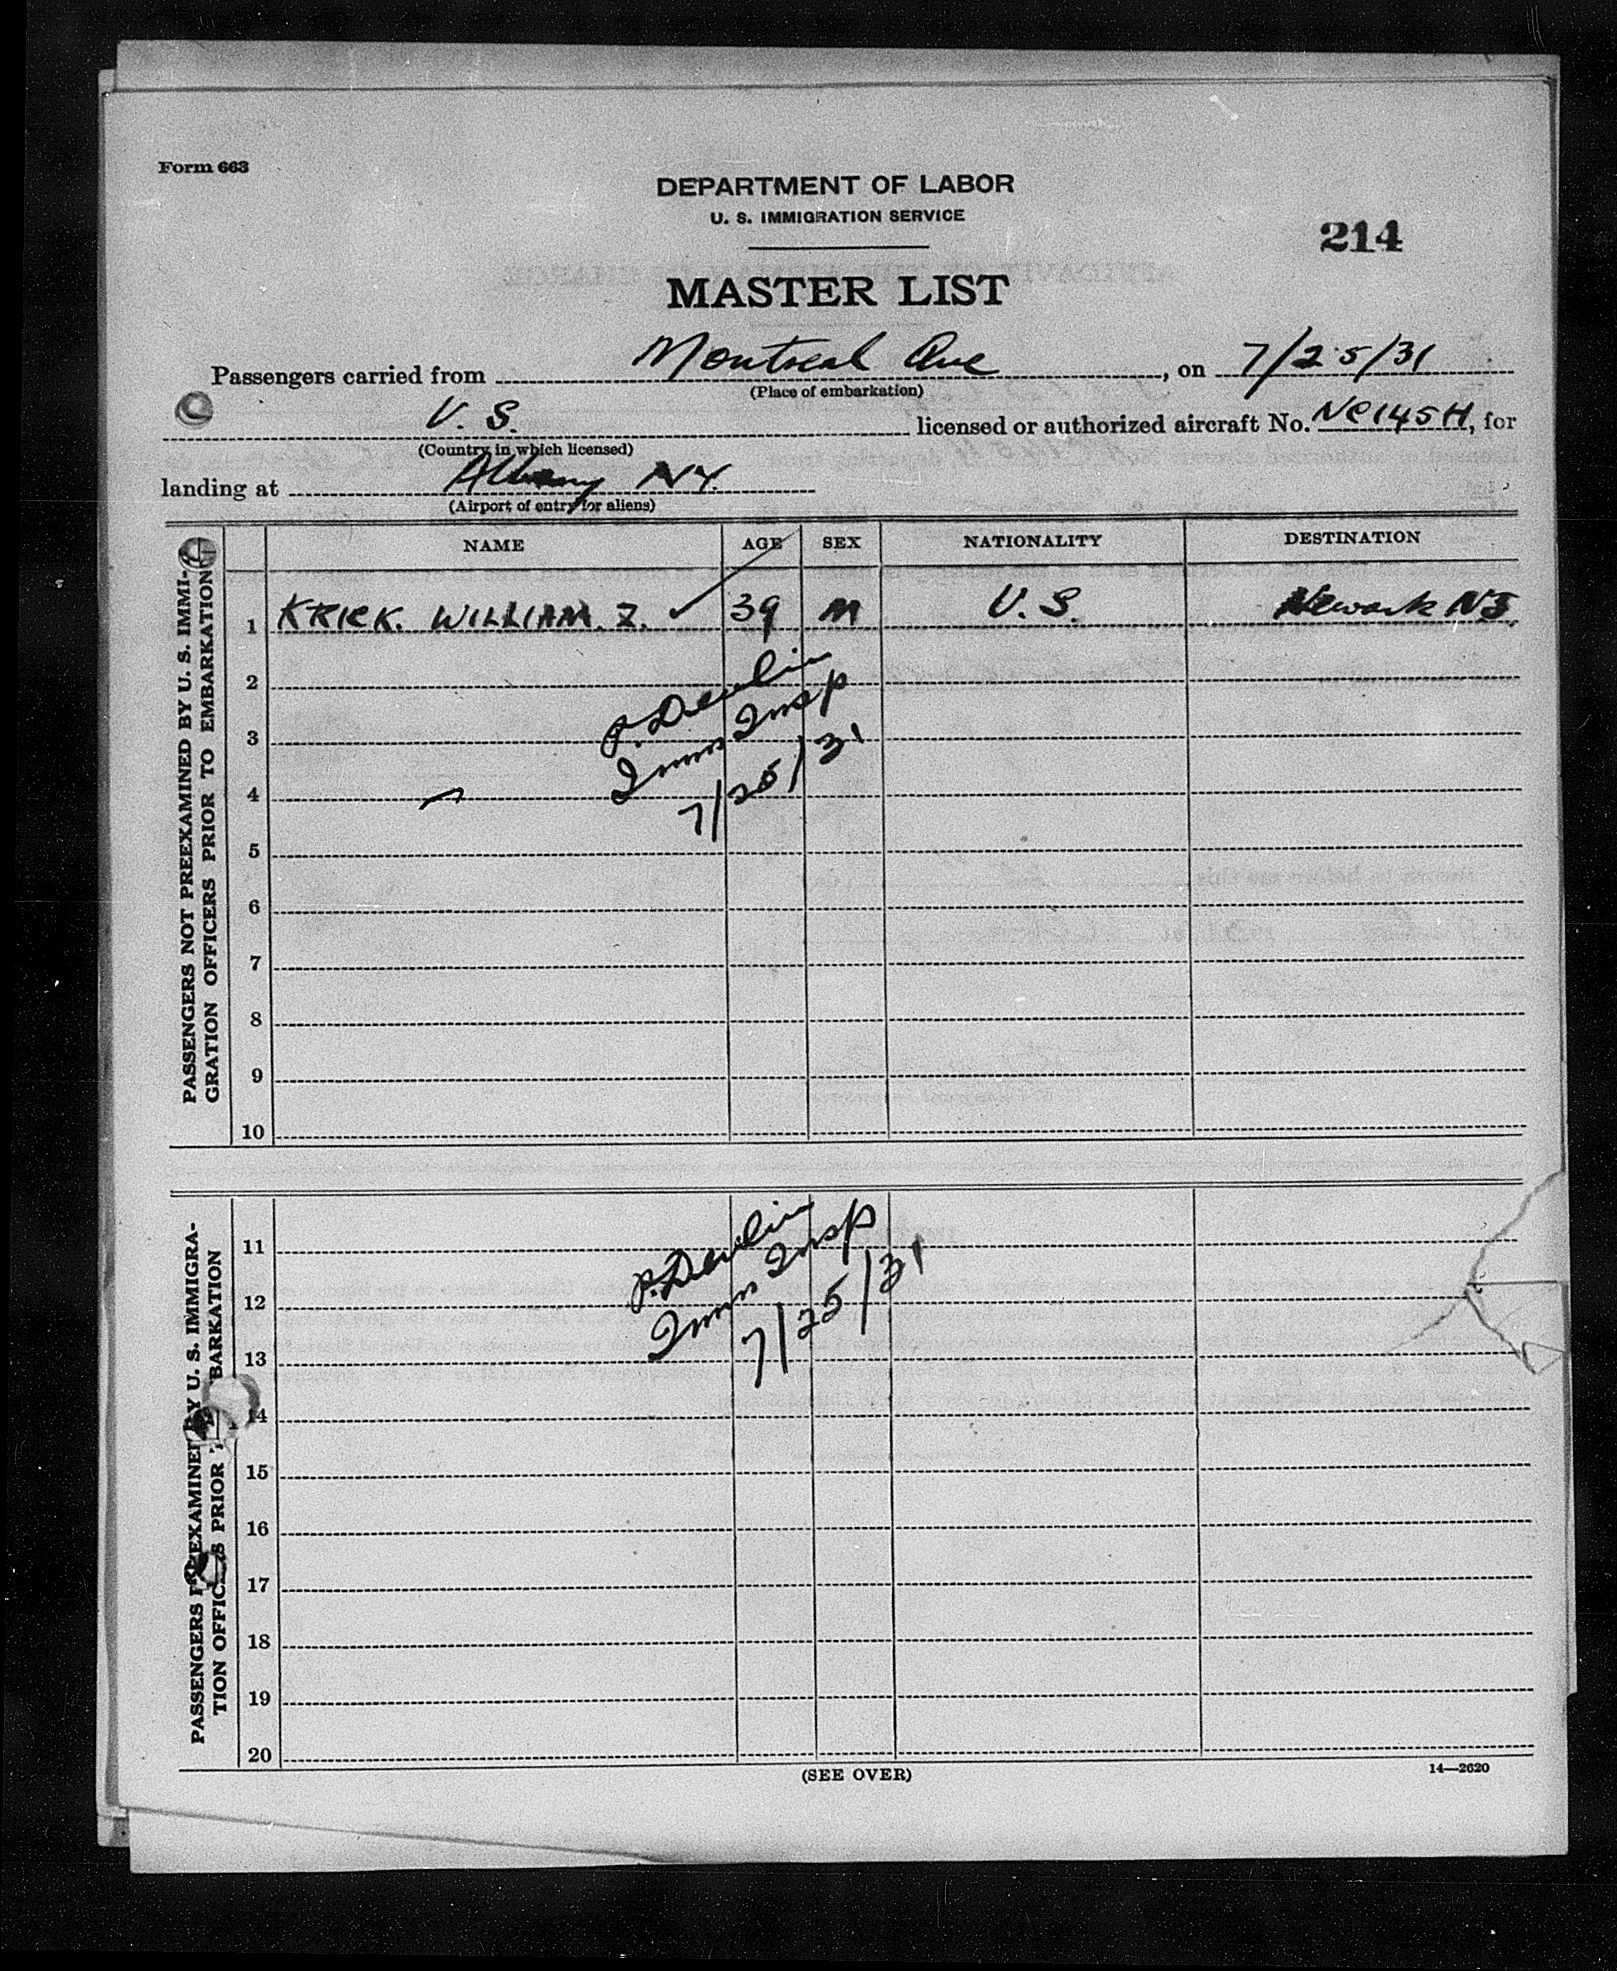 Form 663
DEPARTMENT OF LABOR
U. S. IMMIGRATION SERVICE
214
MASTER LIST
Passengers carried from Montreal Que, on 7/25/31
(Place of embarkation)
U. S. licensed or authorized aircraft No. NC145H, for
(Country in which licensed)
landing at Albany NY.
(Airport of entry for aliens)
NAME AGE SEX NATIONALITY DESTINATION
PASSENGERS NOT PREEXAMINED BY U. S. IMMI-
GRATION OFFICERS PRIOR TO EMBARKATION
1 KRICK. WILLIAM. Z. ✓ 39 M U. S. Newark NJ.
2
P. Devlin
3
Imm Insp
4
7/25/31
5
6
7
8
9
10
PASSENGERS PREEXAMINED BY U. S. IMMIGRA-
TION OFFICERS PRIOR BARKATION
11
P. Devlin
12
Imm Insp
13
7/25/31
14
15
16
17
18
19
20
(SEE OVER)
14—2620